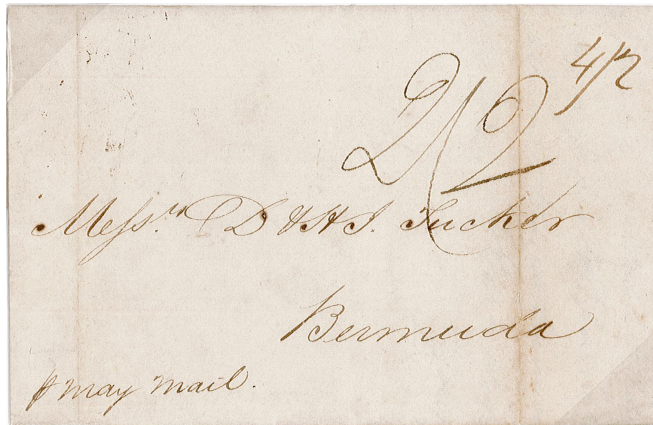 4/2
2/2
Mess.rs D & H J. Tucker
Bermuda
p May Mail.